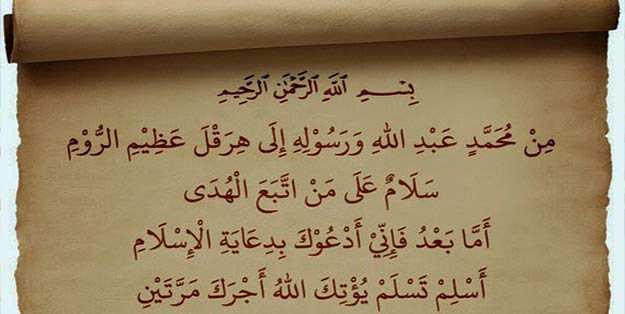 بِسْمِ اللَّهِ الرَّحْمَٰنِ الرَّحِيمِ
مِنْ مُحَمَّدٍ عَبْدِ اللهِ وَرَسُوْلِهِ إِلَى هِرَقْلَ عَظِيْمِ الرُّوْمِ
سَلَامٌ عَلَى مَنْ اتَّبَعَ الْهُدَى
أَمَّا بَعْدُ فَإِنِّيْ أَدْعُوْكَ بِدِعَايَةِ الْإِسْلَامِ
أَسْلِمْ تَسْلَمْ يُؤْتِكَ اللهُ أَجْرَكَ مَرَّتَيْنِ